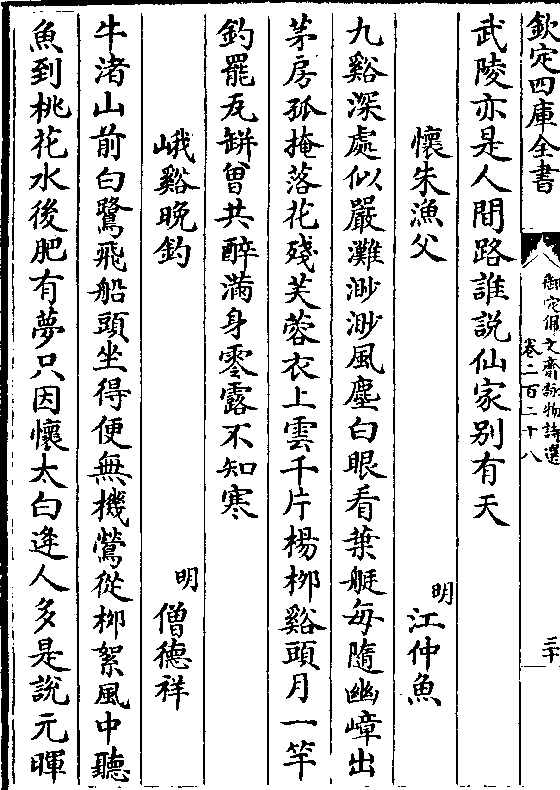 欽定四庫全書
御定佩文齋詠物詩選
卷二百二十八
三十
武陵亦是人間路誰説仙家别有天
懷朱漁父
明
江仲魚
九谿深處似嚴灘渺渺風塵白眼看葉艇每隨幽嶂出
茅房孤掩落花殘芙蓉衣上雲千片楊柳谿頭月一竿
釣罷瓦缾曾共醉滿身零露不知寒
峨谿晚釣
明
僧德祥
牛渚山前白鷺飛船頭坐得便無機鶯從柳絮風中聽
魚到桃花水後肥有夢只因懷太白逢人多是說元暉